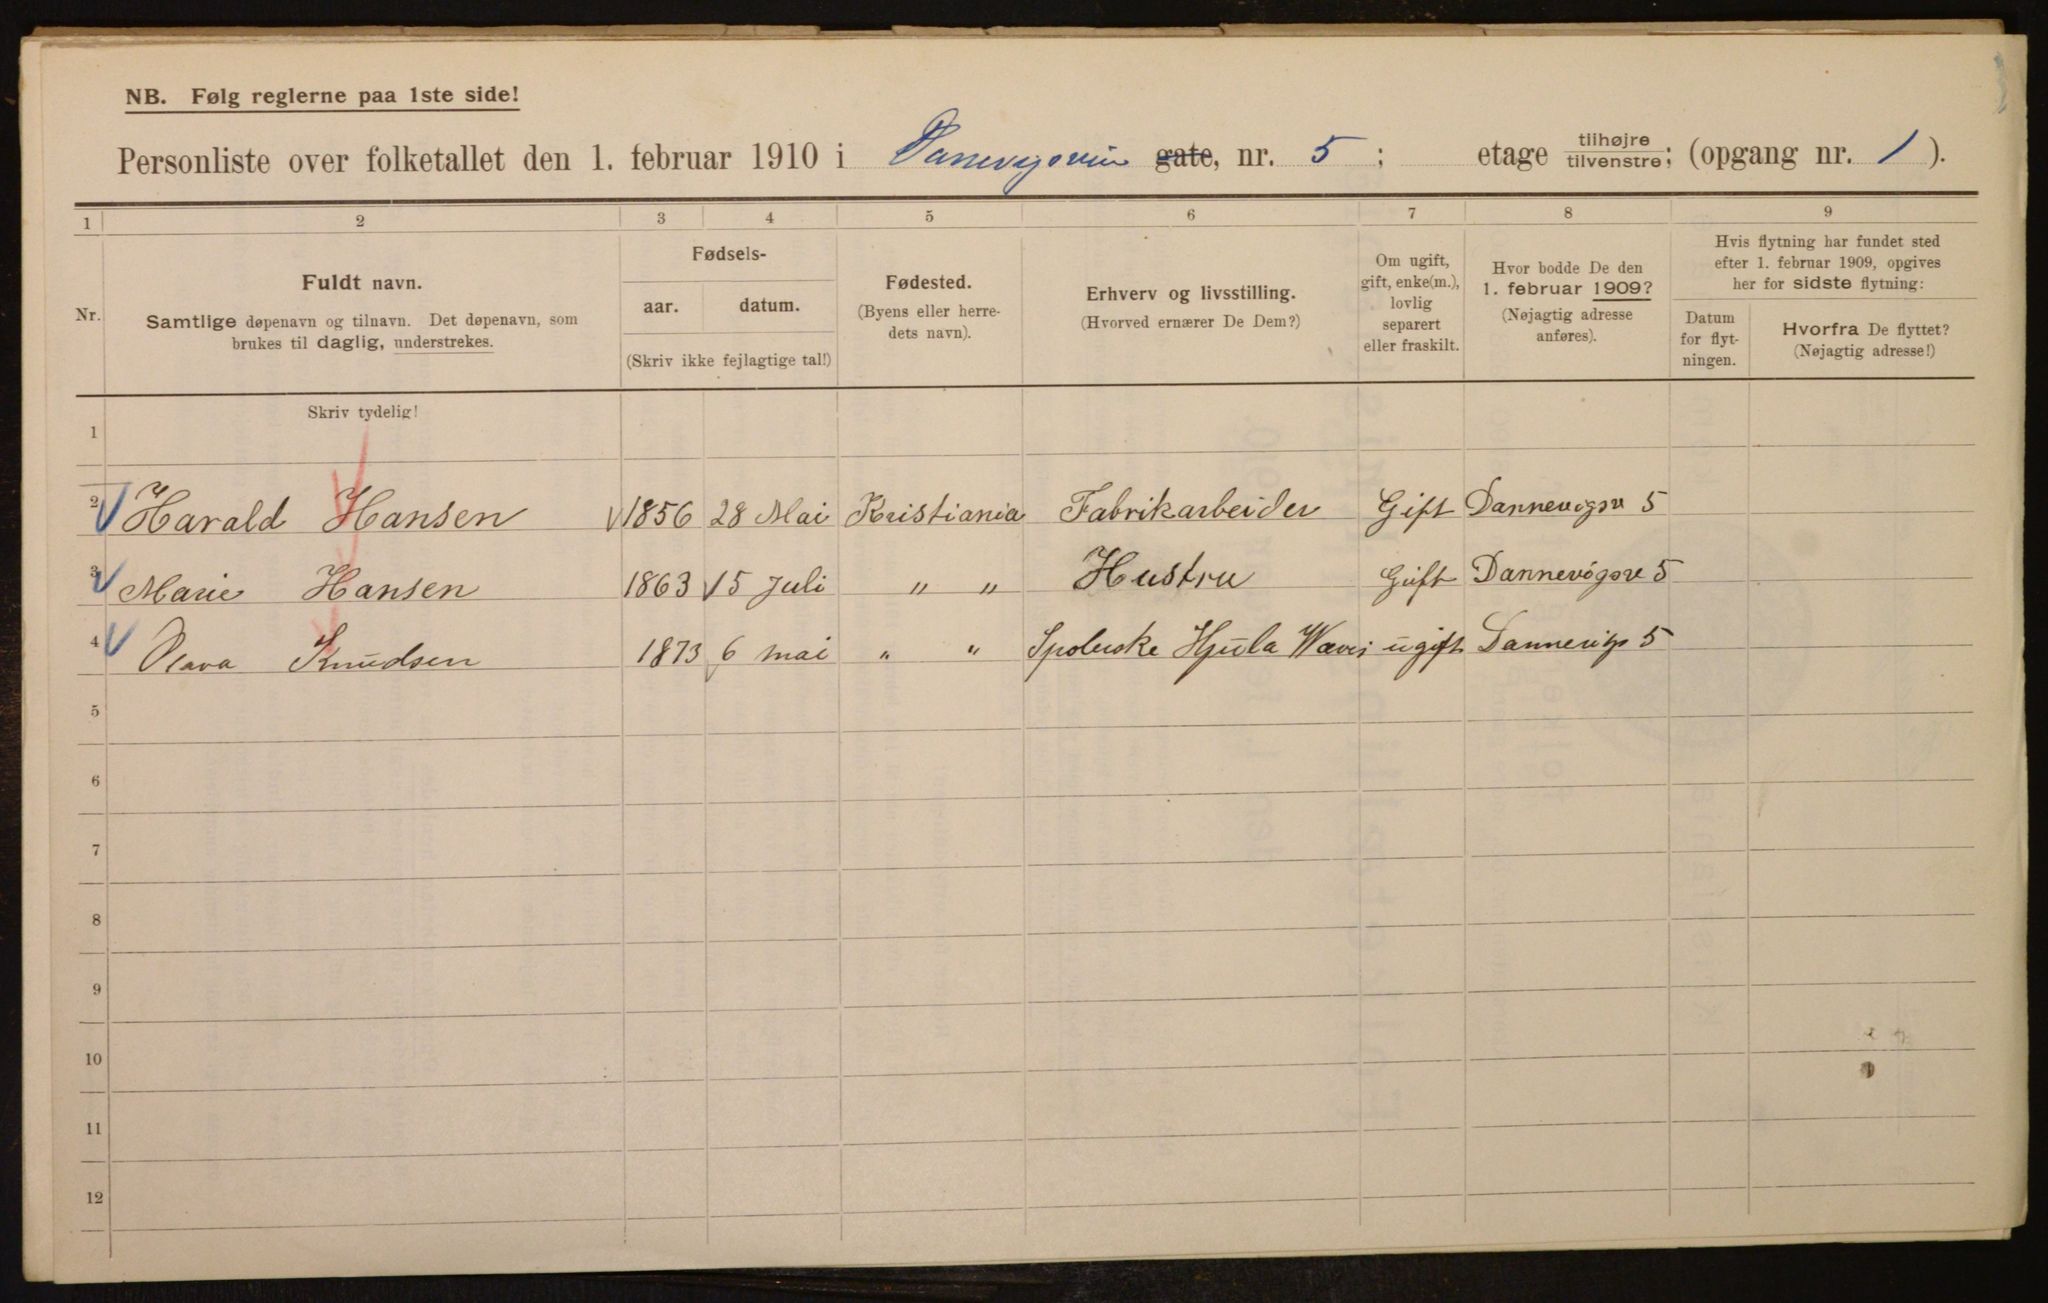 NB. Følg reglerne paa 1ste side!
Personliste over folketallet den 1. februar 1910 i Dannevigsvein gate, nr. 5 ; etage tilhøjre tilvenstre; (opgang nr. 1 ).
1 2 3 4 5 6 7 8 9
Nr.
Fuldt navn.
Samtlige døpenavn og tilnavn. Det døpenavn, som
brukes til daglig, understrekes.
Fødsels-
aar. datum.
(Skriv ikke fejlagtige tal!)
Fødested.
(Byens eller herre-
dets navn).
Erhverv og livsstilling.
(Hvorved ernærer De Dem?)
Om ugift,
gift, enke(m.),
lovlig
separert
eller fraskilt.
Hvor bodde De den
1. februar 1909?
(Nøjagtig adresse
anføres).
Hvis flytning har fundet sted
efter 1. februar 1909, opgives
her for sidste flytning:
Datum
for flyt-
ningen.
Hvorfra De flyttet?
(Nøjagtig adresse!)
Skriv tydelig!
1
2 Harald Hansen 1856 28 Mai Kristiania Fabrikarbeider Gift Dannevigsv 5
3 Marie Hansen 1863 15 Juli " " Hustru Gift Dannevigsve 5
4 Olava Knudsen 1873 6 mai " " Spoleske Hjula Væveri ugift Dannevigs 5
5
6
7
8
9
10
11
12